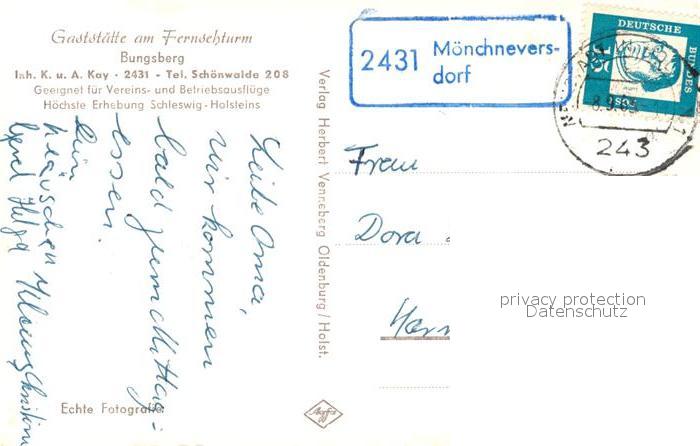 Gaststätte am Fernsehturm
Bungsberg
Inh. K. u. A. Kay · 2431 - Tel. Schönwalde 208
Geeignet für Vereins- und Betriebsausflüge
Höchste Erhebung Schleswig-Holsteins
2431 Mönchnevers-
dorf
DEUTSCHE
BUNDES
243
Liebe Oma,
wir kommen
bald zum Mittag-
essen.
Dein
Helga
Verlag Herbert Venneberg Oldenburg / Holst.
Frau
Dora
privacy protection
Datenschutz
Echte Fotografie
Agfa